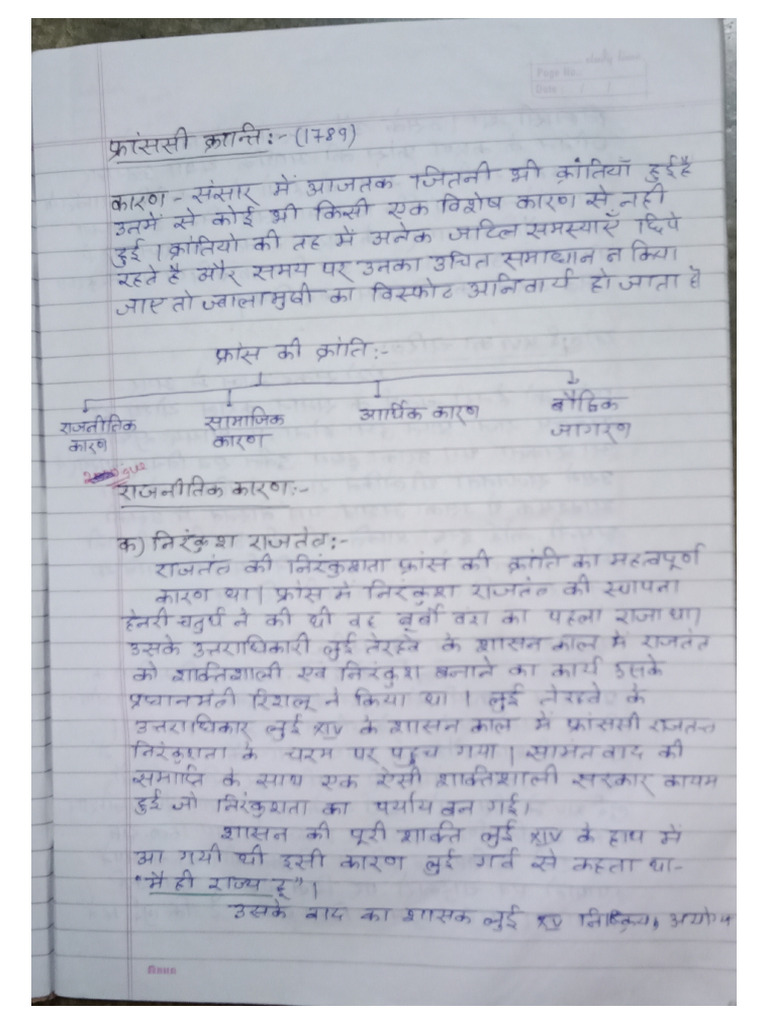 Page No.
Date : / /
फ्रांससी क्रान्ति:- (1789)
कारण - संसार में आजतक जितनी भी क्रांतियाँ हुई है
उनमें से कोई भी किसी एक विशेष कारण से नही
हुई। क्रांतियो की तह में अनेक जटिल समस्याएँ छिपे
रहते है और समय पर उनका उचित समाधान न किया
जाए तो ज्वालामुखी का विस्फोट अनिवार्य हो जाता है
फ्रांस की क्रांति:-
राजनीतिक कारण
सामाजिक कारण
आर्थिक कारण
बौद्धिक जागरण
राजनीतिक कारण:-
क) निरंकुश राजतंत्र:-
राजतंत्र की निरंकुशता फ्रांस की क्रांति का महत्वपूर्ण
कारण था। फ्रांस में निरंकुश राजतंत्र की स्थापना
हेनरी चतुर्थ ने की थी वह बूर्बो वंश का पहला राजा था।
उसके उत्तराधिकारी लुई तेरहवे के शासन काल में राजतंत्र
को शक्तिशाली एवं निरंकुश बनाने का कार्य उसके
प्रधानमंत्री रिशलू ने किया था। लुई तेरहवे के
उत्तराधिकार लुई XIV के शासन काल में फ्रांससी राजतन्त्र
निरंकुशता के चरम पर पहुच गया। सामंतवाद की
समाप्ति के साथ एक ऐसी शक्तिशाली सरकार कायम
हुई जो निरंकुशता का पर्याय बन गई।
शासन की पूरी शक्ति लुई XIV के हाथ में
आ गयी थी इसी कारण लुई गर्व से कहता था-
"मै ही राज्य हू"।
उसके बाद का शासक लुई XV निष्क्रिय, अयोग्य